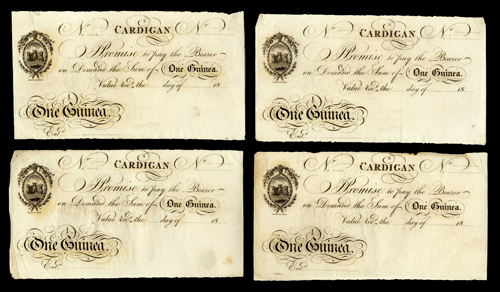 No CARDIGAN No
I Promise to pay the Bearer
on Demand the Sum of One Guinea.
Value Recd. the day of 18
One Guinea.
Entd.
No CARDIGAN No
I Promise to pay the Bearer
on Demand the Sum of One Guinea.
Value Recd. the day of 18
One Guinea.
Entd.
No CARDIGAN No
I Promise to pay the Bearer
on Demand the Sum of One Guinea.
Value Recd. the day of 18
One Guinea.
Entd.
No CARDIGAN No
I Promise to pay the Bearer
on Demand the Sum of One Guinea.
Value Recd. the day of 18
One Guinea.
Entd.